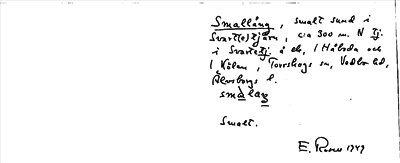 Smallång, smalt sund i
Svart(e)tjärn, c:a 300 m. N tj.
i Svartetj. å ek, 1 Håbols och
1 Kölan, Torrskogs sn, Vedbo hd,
Älvsborgs l.
smalaŋ
Smalt.
E. Rosen 1949